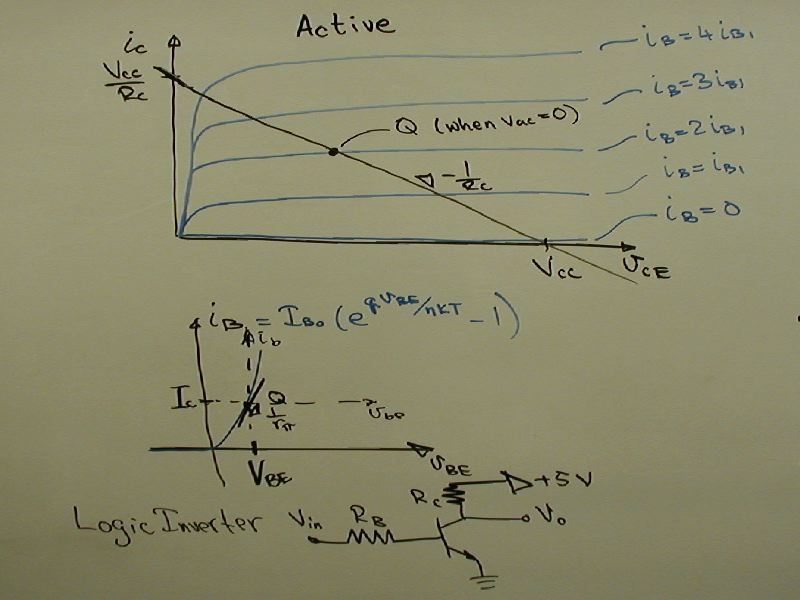 Active
ic
Vcc/Rc
iB=4iB1
iB=3iB1
Q (when vac=0)
iB=2iB1
-1/Rc
iB=iB1
iB=0
Vcc
vCE
iB = IBo (e^qVBE/nKT - 1)
ib
Ic
Q
1/rπ
vbe
VBE
vBE
Logic Inverter
Vin
RB
Rc
+5V
Vo